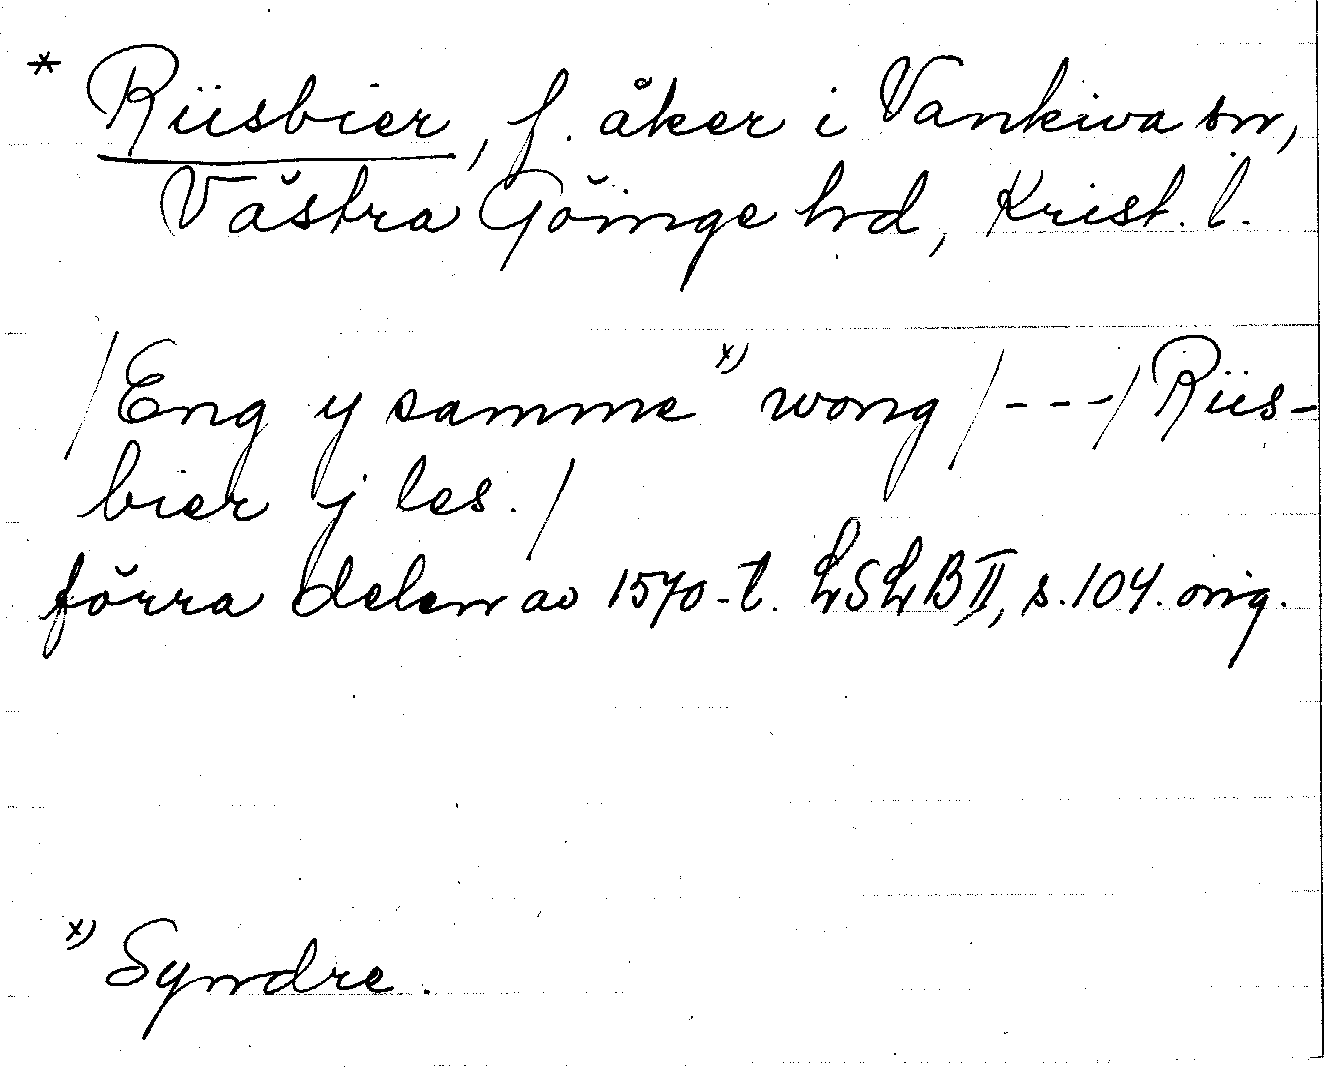 * Riisbier, f. åker i Vankiva sn,
Västra Göinge hd, Krist. l.
/Eng y samme x) wong /---/ Riis-
bier j les./
förra delen av 1570-t. LSLB II, s. 104. orig.
x) Syndre.